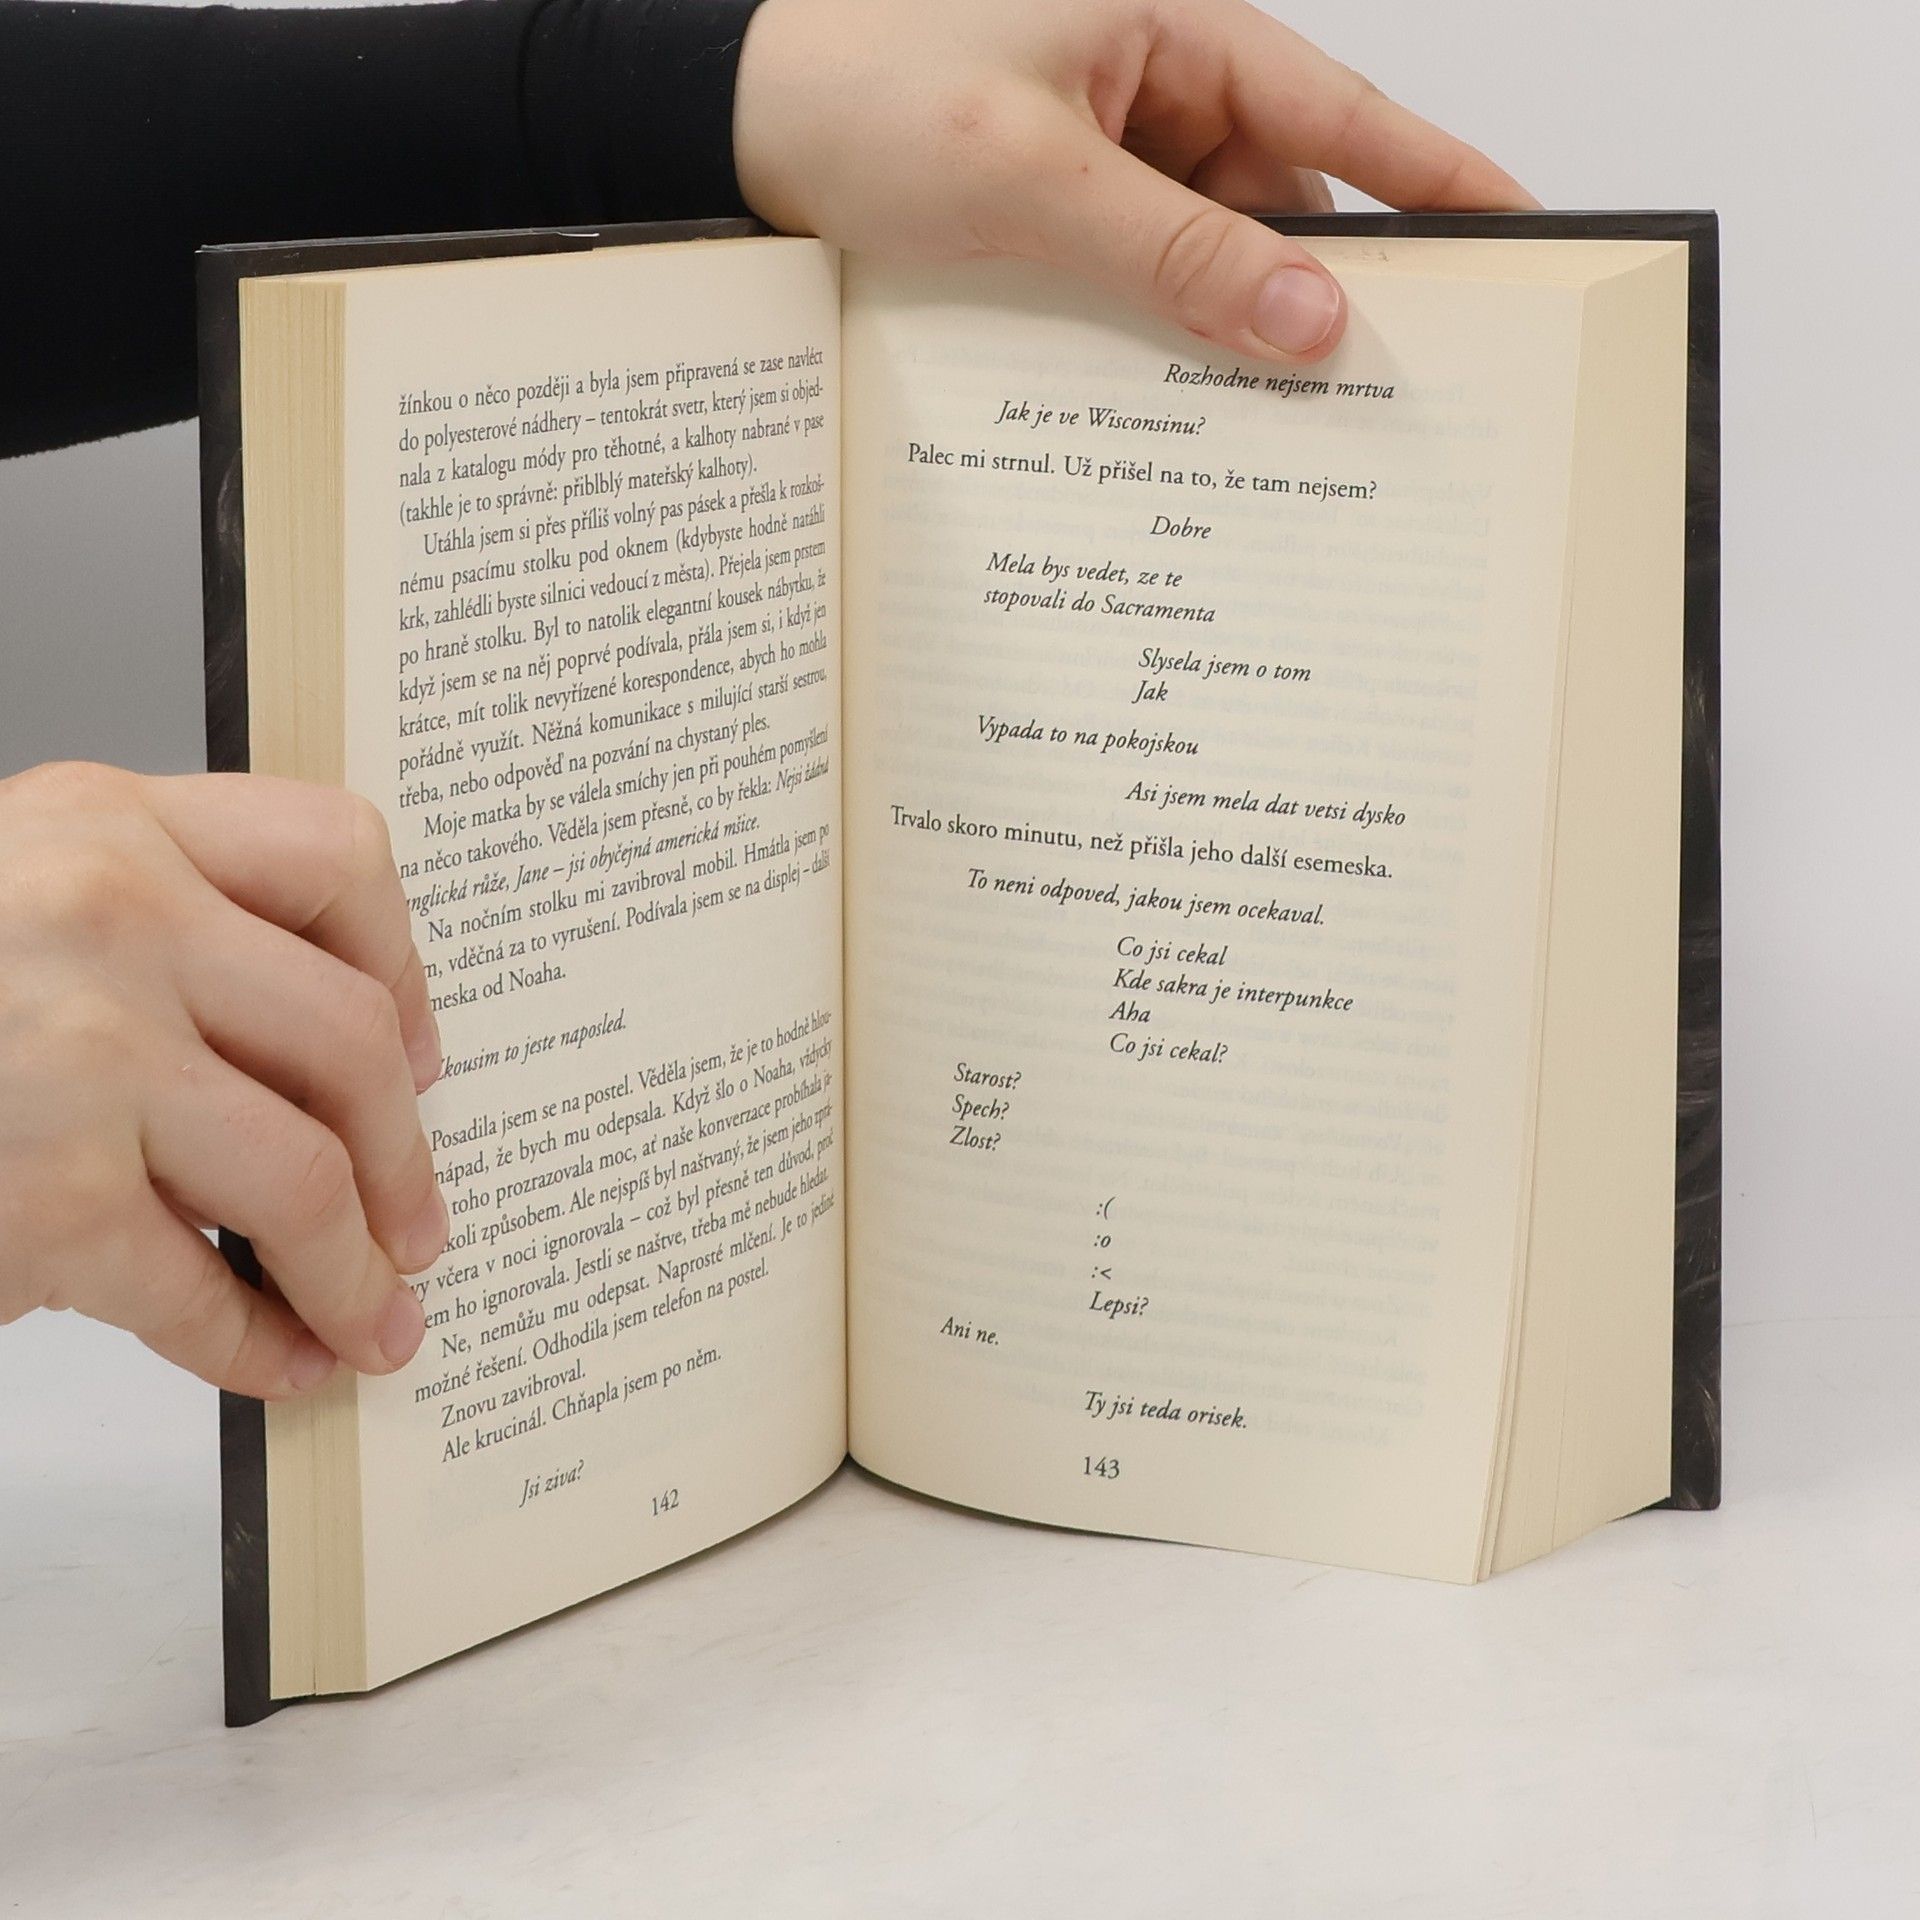 žínkou o něco později a byla jsem připravená se zase navléct
do polyesterové nádhery – tentokrát svetr, který jsem si objed-
nala z katalogu módy pro těhotné, a kalhoty nabrané v pase
(takhle je to správně: přiblblý mateřský kalhoty).
Utáhla jsem si přes příliš volný pas pásek a přešla k rozkoš-
nému psacímu stolku pod oknem (kdybyste hodně natáhli
krk, zahlédli byste silnici vedoucí z města). Přejela jsem prstem
po hraně stolku. Byl to natolik elegantní kousek nábytku, že
když jsem se na něj poprvé podívala, přála jsem si, i když jen
krátce, mít tolik nevyřízené korespondence, abych ho mohla
pořádně využít. Něžná komunikace s milující starší sestrou,
třeba, nebo odpověď na pozvání na chystaný ples.
Moje matka by se válela smíchy jen při pouhém pomyšlení
na něco takového. Věděla jsem přesně, co by řekla: Nejsi žádná
anglická růže, Jane – jsi obyčejná americká mšice.
Na nočním stolku mi zavibroval mobil. Hmátla jsem po
m, vděčná za to vyrušení. Podívala jsem se na displej – další
meska od Noaha.
Zkousim to jeste naposled.
Posadila jsem se na postel. Věděla jsem, že je to hodně hlou-
nápad, že bych mu odepsala. Když šlo o Noaha, vždycky
toho prozrazovala moc, ať naše konverzace probíhala ja-
koli způsobem. Ale nejspíš byl naštvaný, že jsem jeho zprá-
vy včera v noci ignorovala – což byl přesně ten důvod, proč
sem ho ignorovala. Jestli se naštve, třeba mě nebude hledat.
Ne, nemůžu mu odepsat. Naprosté mlčení. Je to jediné
možné řešení. Odhodila jsem telefon na postel.
Znovu zavibroval.
Ale krucinál. Chňapla jsem po něm.
Jsi ziva?
142
Rozhodne nejsem mrtva
Jak je ve Wisconsinu?
Palec mi strnul. Už přišel na to, že tam nejsem?
Dobre
Mela bys vedet, ze te
stopovali do Sacramenta
Slysela jsem o tom
Jak
Vypada to na pokojskou
Asi jsem mela dat vetsi dysko
Trvalo skoro minutu, než přišla jeho další esemeska.
To neni odpoved, jakou jsem ocekaval.
Co jsi cekal
Kde sakra je interpunkce
Aha
Co jsi cekal?
Starost?
Spech?
Zlost?
:(
:o
:<
Lepsi?
Ani ne.
Ty jsi teda orisek.
143